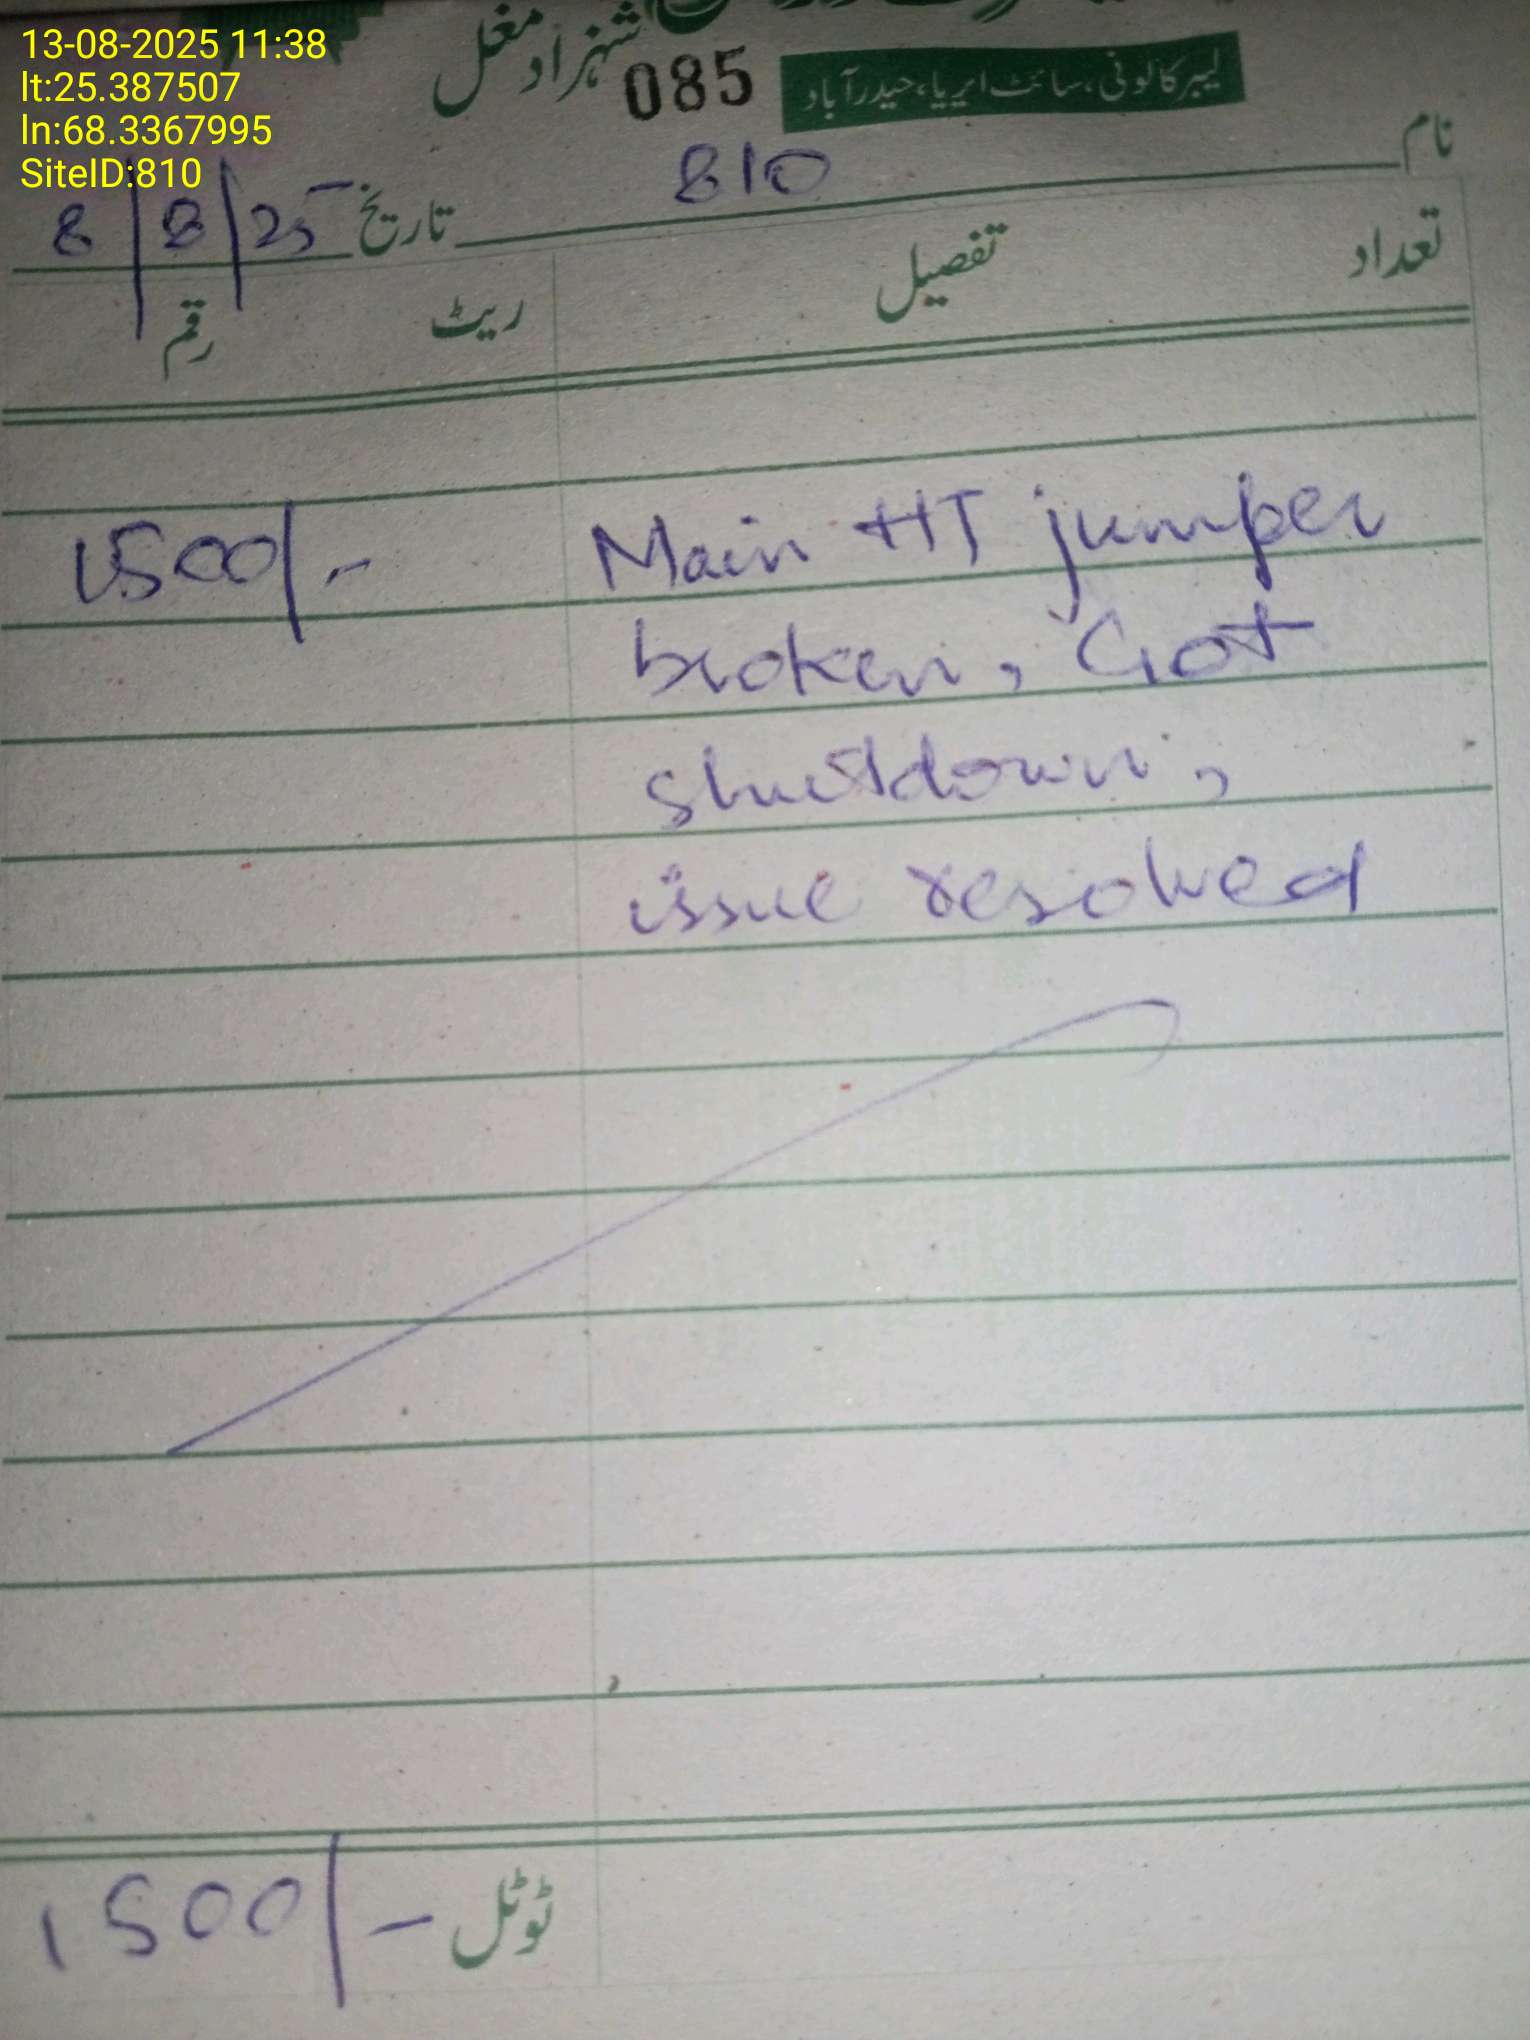 13-08-2025 11:38
lt:25.387507
ln:68.3367995
SiteID:810
شہزاد مغل
085
لیبر کالونی، سائٹ ایریا، حیدرآباد
نام 810
تاریخ 8/8/25
تعداد تفصیل ریٹ رقم
Main HT jumper 1500/-
broken, Got
shutdown,
issue resolved
ٹوٹل 1500/-